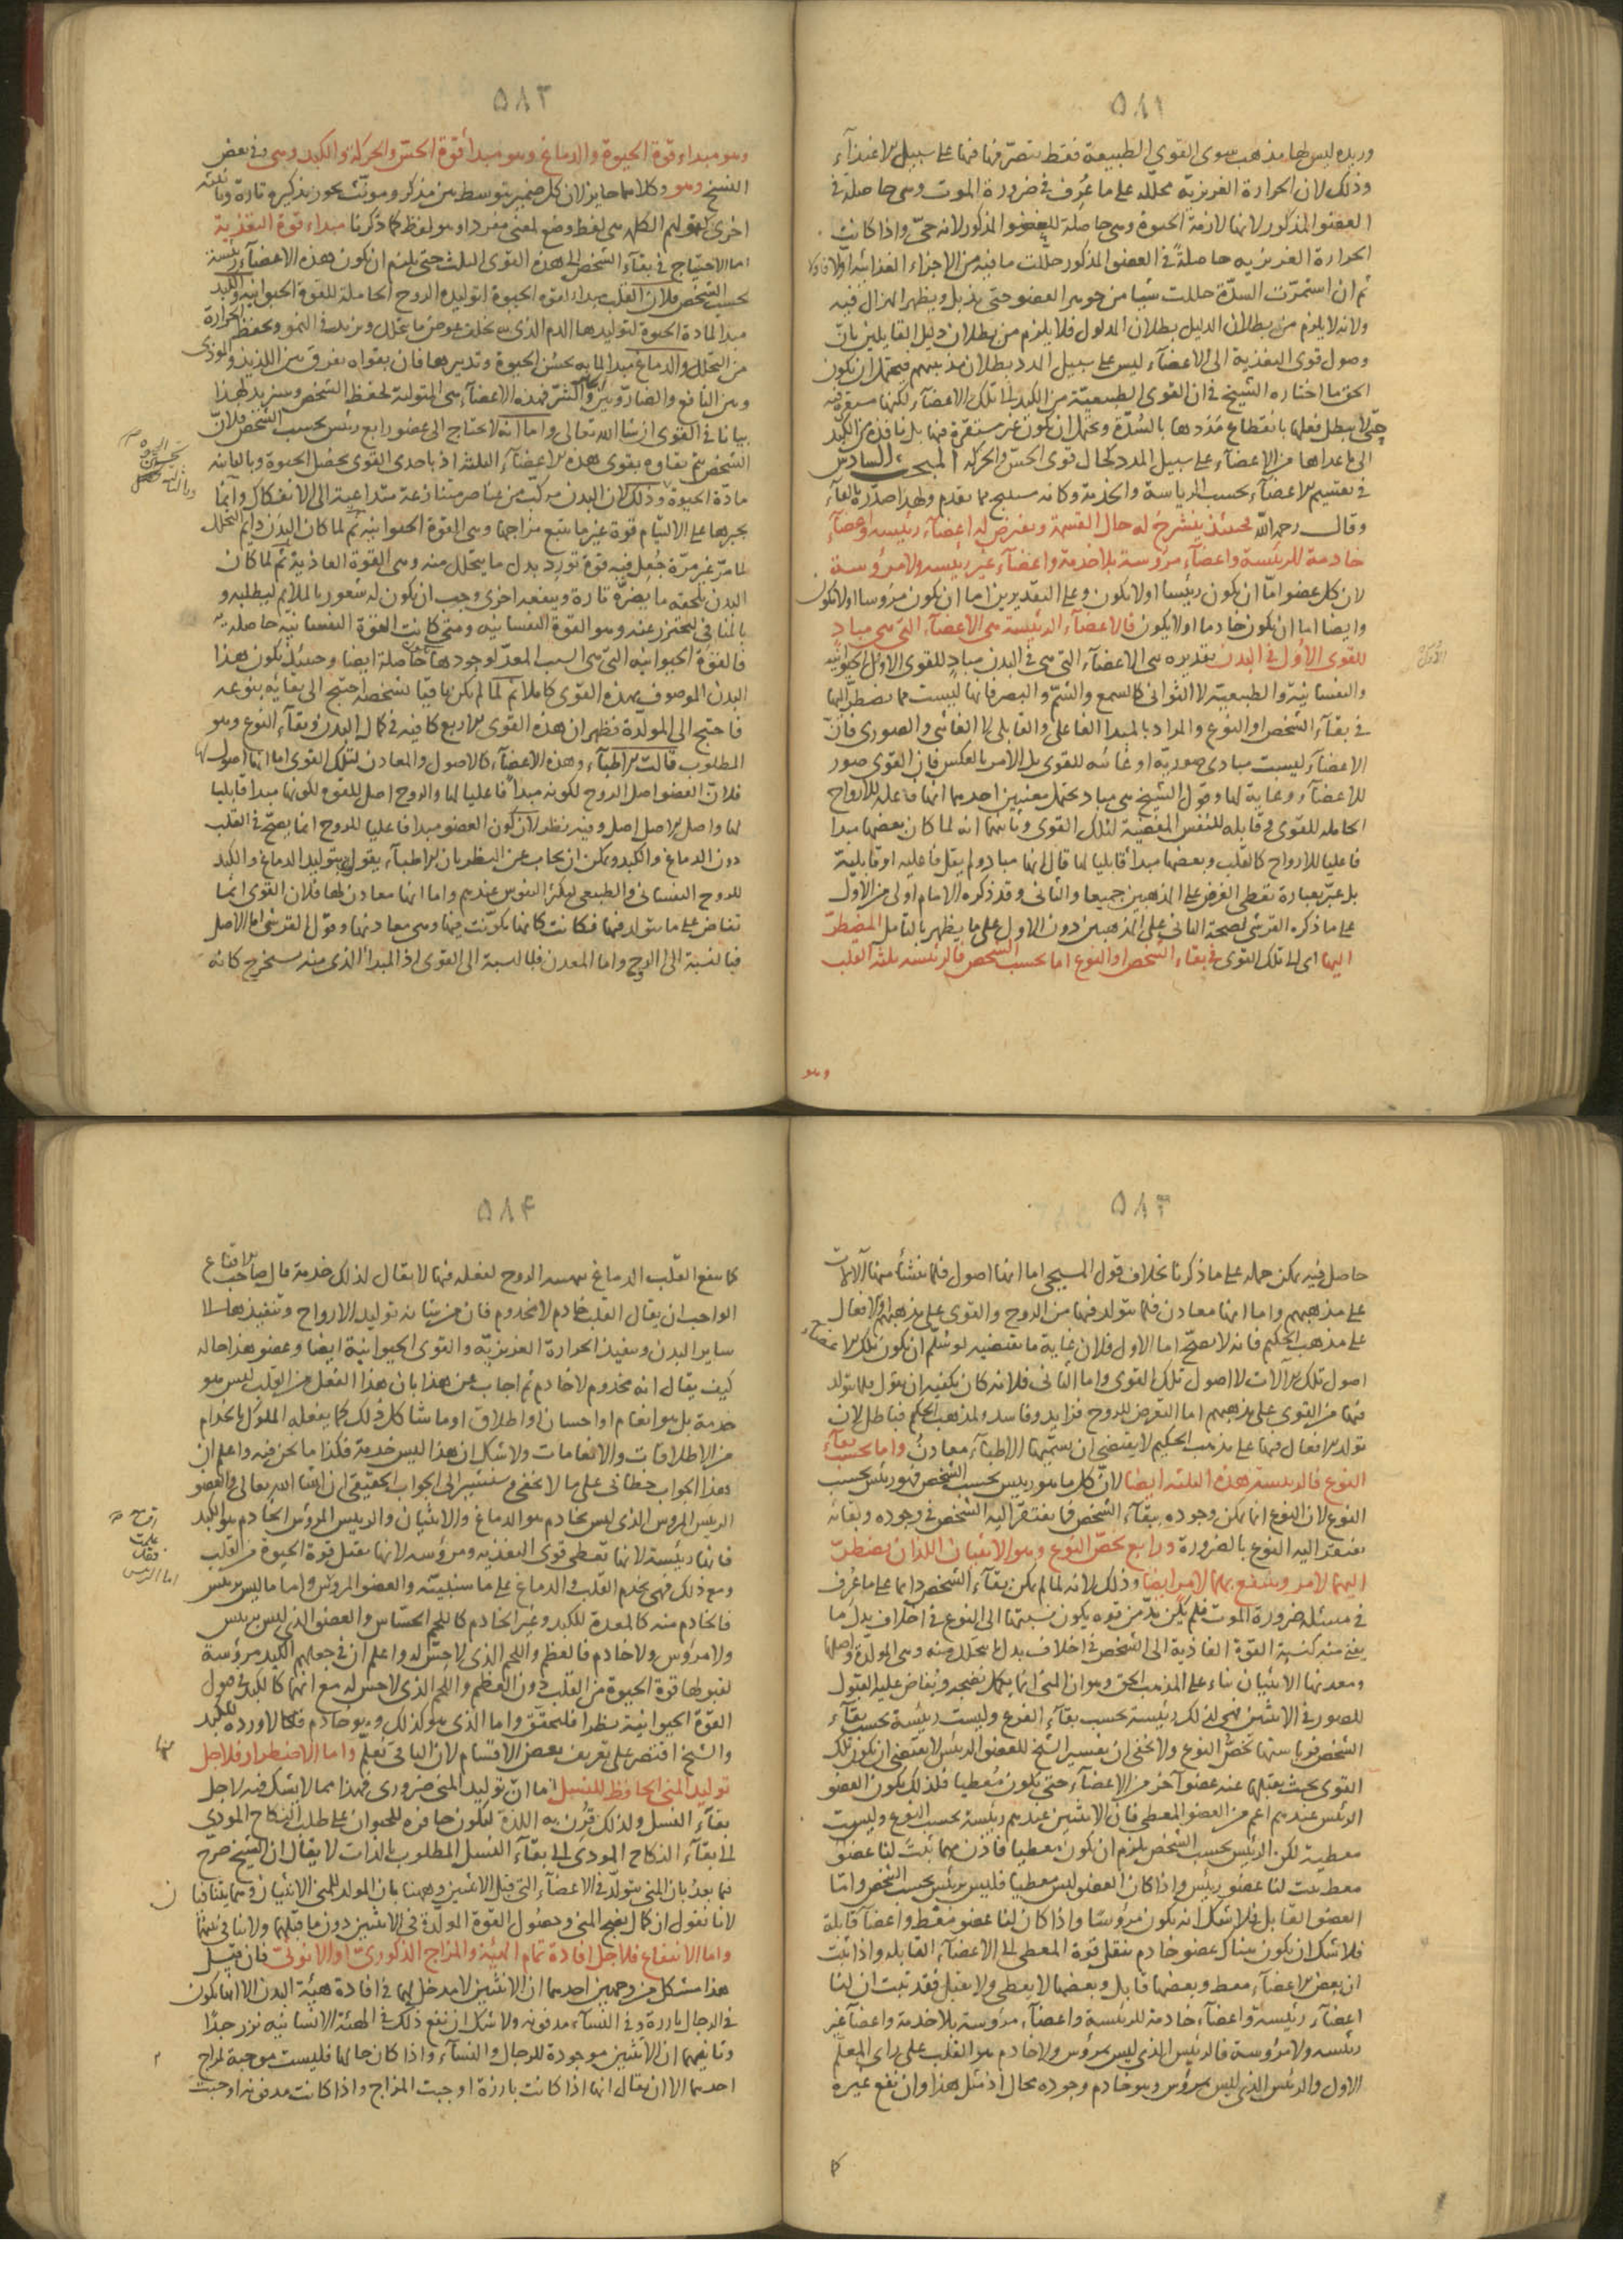 ٥٨١
وذلك لان الحرارة الغريزية محللة على ما عرف في ضرورة الموت وهي حاصلة في
العضو المذكور لانها لازمة الحيوة وهي حاصلة للعضو المذكور لانه حي واذا كانت
الحرارة الغريزيه حاصلة في العضو المذكور حللت ما فيه من الاجزاء الغذائية اولا
ثم ان استمرت السدة حللت شيا من جوهر العضو حتى يذبل ويظهر الهزال فيه
ولانه لا يلزم من بطلان الدليل بطلان المدلول فلا يلزم من بطلان دليل القايلين بان
وصول قوى التغذية الى الاعضآء ليس على سبيل المدد بطلان مذهبهم فيحتمل ان يكون
الحق ما اختاره الشيخ في ان القوى الطبيعية من الكبد الى تلك الاعضآء لكنها مستقرة فيه
حتى لا يبطل فعلها بانقطاع مددها بالسدة ويحتمل ان يكون غير مستقرة فيها بل نافذة من الكبد
الى ما عداها من الاعضآء على سبيل المدد كحال قوى الحس والحركه المبحث السادس
في تقسيم الاعضآء بحسب الرياسة والخدمة وكانه سنح مما تقدم ولهذا صدره بالفآء
وقال رحمه الله فحينئذ ينشرح له حال القسمة ويفرض له اعضآء رئيسه واعضآء
خادمة للرئيسة واعضآء مرؤسة بلا خدمة واعضآء غير رئيسه ولا مرؤسة
لان كل عضو اما ان يكون رئيسا اولا يكون وعلى التقديرين اما ان يكون مرؤسا اولا يكون
وايضا اما ان يكون خادما اولا يكون فالاعضآء الرئيسة هي الاعضآء التي هي مباد
للقوى الاول في البدن تقديره هي الاعضآء التي هي في البدن مباد للقوى الاول الحيوانية
والنفسانية والطبيعية لا الثواني كالسمع والشم والبصر فانها ليست مما يضطر اليها
في بقآء الشخص او النوع والمراد بالمبدا الفاعلي والقابلي لا الغائي والصوري فان
الاعضآء ليست مبادي صورية او غائيه للقوى بل الامر بالعكس فان القوى صور
للاعضآء وغاية لها وقول الشيخ هي مباد يحتمل معنيين احدهما انها فاعلة للارواح
الحامله للقوى وقابله للنفس المفيضة لتلك القوى وثانيهما انه لما كان بعضها مبدا
فاعليا للارواح كالقلب وبعضها مبدأ قابليا لها قال انها مباد ولم يقل فاعليه او قابلية
بل عبر بعبارة تعطى الغرض على المذهبين جميعا والثاني وقد ذكره الامام اولى من الاول
على ما ذكره القرشي لصحة الثاني على المذهبين دون الاول على ما يظهر بالتامل المضطر
اليها اى الى تلك القوى في بقاء الشخص او النوع اما بحسب الشخص فالرئيسه ثلثه القلب
وهو
٥٨٢
وهو مبداء قوة الحيوة والدماغ وهو مبدأ قوة الحس والحركة والكبد وهي وفي بعض
النسخ وهو وكلاهما جايز لان كل ضمير يتوسط بين مذكر ومؤنث يجوز تذكيره تارة وتانيثه
اخرى كقولهم الكلمه هي لفظ وضع لمعنى مفرد او هو لفظ كما ذكرنا مبداء قوة التغذية
اما الاحتياج في بقآء الشخص الى هذه القوى الثلث حتى يلزم ان يكون هذه الاعضآء رئيسة
بحسب الشخص فلان القلب مبداء لقوة الحيوة لتوليده الروح الحاملة للقوة الحيوانيه والكبد
مبدا لمادة الحيوة لتوليدها الدم الذي يتخلف عوض ما يتحلل ويزيد في النمو ويحفظ الحرارة
من التحلل والدماغ مبدا لما به يحسن الحيوة وتدبيرها فان بقواه يفرق بين اللذيذ والموذى
وبين النافع والضار وبين الخير والشر فهذه الاعضآء هي المتولية لحفظ الشخص وسنزيد لهذا
بيانا في القوى ان شا الله تعالى واما انه لا يحتاج الى عضو رابع رئيس بحسب الشخص فلان
الشخص يتم بقاوه بقوى هذه الاعضآء الثلثة اذ باحدى القوى يحصل الحيوة وبالثانيه
مادة الحيوة وذلك لان البدن مركب من عناصر متنازعة متداعية الى الانفكاك وانما
يجبرها على الالتيام قوة غير ما يتبع مزاجها وهي القوة الحيوانيه ثم لما كان البدن دايم التحلل
لما مر غير مرة جعل فيه قوة تورد بدل ما يتحلل منه وهي القوة الغاذية ثم لما كان
البدن يلحقه ما يضره تارة وينفعه اخرى وجب ان يكون له شعور بالملايم ليطلبه و
بالمنافي ليحترز عنه وهو القوة النفسانيه ومتى كانت القوة النفسانية حاصلة
فالقوة الحيوانيه التي هي السبب المعد لوجودها حاصلة ايضا وحينئذ يكون هذا
البدن الموصوف بهذه القوى كاملا ثم لما لم يكن باقيا بشخصه احتيج الى بقائه بنوعه
فاحتيج الى المولدة فظهر ان هذه القوى الاربع كافيه في كمال البدن وبقآء النوع وهو
المطلوب قالت الاطبآء وهذه الاعضآء كالاصول والمعادن لتلك القوى اما انها اصول لها
فلان العضو اصل الروح لكونه مبدأ فاعليا لها والروح اصل للقوه لكونها مبدا قابليا
لها واصل الاصل اصل وفيه نظر لان كون العضو مبدا فاعليا للروح انما يصح في القلب
دون الدماغ والكبد ويمكن ان يجاب عن النظر بان الاطبآء يقولون بتوليد الدماغ والكبد
للروح النفساني والطبيعي واما انها معادن لها فلان القوى انما
تفاض على ما يتولد فيها فكانت كانها تكونت فيها وهي معادنها وقول القرشي اما الاصل
فبالنسبة الى الروح واما المعدن فبالنسبة الى القوى اذ المبدا الذي منه يستخرج كانه
٥٨٣
حاصل فيه يمكن حمله على ما ذكرنا بخلاف قول المسيحي اما انها اصول فلما ينشأ منها الآلات
على مذهبهم واما انها معادن فلما يتولد فيها من الروح والقوى على مذهبهم والافعال
على مذهب الحكيم فانه لا يصح اما الاول فلان غاية ما يقتضيه لو سلم ان يكون تلك الاعضاء
اصول تلك الآلات لا اصول تلك القوى واما الثاني فلانه كان يكفيه ان يقول فلما يتولد
فيها من القوى على مذهبهم اما التعرض للروح فزايد وفاسد ولمذهب الحكيم فباطل لان
تولد الافعال فيها على مذهب الحكيم لا يقتضي ان يسميها الاطبآء معادن واما بحسب بقآء
النوع فالرئيسة هذه الثلثه ايضا لان كل ما هو رئيس بحسب الشخص فهو رئيس بحسب
النوع لان النوع انما يمكن وجوده ببقآء الشخص فما يفتقر اليه الشخص في وجوده وبقائه
يفتقر اليه النوع بالضرورة ورابع يخص النوع وهو الانثيان اللذان يضطر
اليهما لامر وينتفع بهما لامر ايضا وذلك لانه لما لم يمكن بقآء الشخص دائما على ما عرف
في مسئله ضرورة الموت فلم يكن بد من قوه يكون نسبتها الى النوع في اخلاف بدل ما
يفنى منه كنسبة القوة الغاذية الى الشخص في اخلاف بدل ما يتحلل منه وهي المولدة واصلها
ومعدنها الانثيان بناء على المذهب الحق وهو ان المني انما يتكمل نضجه ويفاض عليه القبول
للصور في الانثيين فهي لذلك رئيسة بحسب بقآء النوع وليست رئيسة بحسب بقآء
الشخص فرياستها تخص النوع ولا يخفى ان تفسير الشيخ للعضو الرئيس لا يقتضي ان يكون تلك
القوى بحيث يقبلها عنه عضو آخر من الاعضآء حتى يكون معطيا فلذلك يكون العضو
الرئيس عندهم اعم من العضو المعطي فان الانثيين عندهم رئيسة بحسب النوع وليست
معطية لكن الرئيس بحسب الشخص يلزم ان يكون معطيا فاذن مهما ثبت لنا عضو
معط ثبت لنا عضو رئيس واذا كان العضو ليس معطيا فليس برئيس بحسب الشخص واما
العضو القابل فلا شك انه يكون مرؤسا واذا كان لنا عضو معط واعضآ قابلة
فلا شك ان يكون هناك عضو خادم ينقل قوة المعطي الى الاعضآء القابله واذا ثبت
ان بعض الاعضآء معط وبعضها قابل وبعضها لا يعطى ولا يقبل فقد ثبت ان لنا
اعضآء رئيسة واعضآء خادمة للرئيسة واعضآء مرؤسة بلا خدمة واعضآ غير
رئيسه ولا مرؤسة فالرئيس الذي ليس بمرؤس ولا خادم هو القلب على راى المعلم
الاول والرئيس الذي ليس بمرؤس وهو خادم وجوده محال اذ مثل هذا وان نفع غيره
كا
٥٨٤
الواجب ان يقال القلب خادم لا مخدوم فان من شانه توليد الارواح وتنفيذها الى
ساير البدن وتنفيذ الحرارة الغريزيه والقوى الحيوانية ايضا وعضو هذا حاله
كيف يقال انه مخدوم لا خادم ثم اجاب عن هذا بان هذا الفعل من القلب ليس هو
خدمة بل هو انعام او احسان او اطلاق او ما شاكل ذلك كما يفعله الملوك بالخدام
من الاطلاقات والانعامات ولا شك ان هذا ليس خدمة فكذا ما نحن فيه واعلم ان
هذا الجواب خطابي على ما لا يخفى وسنشير الى الجواب الحقيقي ان شآ الله تعالى والعضو
الرئيس المرؤس الذي ليس بخادم هو الدماغ والانثيان والرئيس المرؤس الخادم هو الكبد
فانها رئيسة لانها تعطى قوى التغذيه ومرؤسه لانها تقبل قوة الحيوة من القلب
ومع ذلك فهي تخدم القلب والدماغ على ما سنبينه والعضو المرؤس واما ما ليس برئيس
فالخادم منه كالمعدة للكبد وغير الخادم كاللحم الحساس والعضو الذي ليس برئيس
ولا مرؤس ولا خادم فالعظم واللحم الذي لا حس له واعلم ان في جعلهم الكبد مرؤسة
لقبولها قوة الحيوة من القلب دون العظم واللحم الذي لا حس له مع انهما كالكبد في وصول
القوة الحيوانية نظرا فليحقق واما الذي هو كذلك وهو خادم فكالاوردة للكبد
والشيخ اقتصر على تعريف بعض الاقسام لان الباقي تعلم واما الاضطرار فلاجل
توليد المني الحافظ للنسل اما ان توليد المني ضروري فهذا مما لا يشك فيه لاجل
بقآء النسل ولذلك قرن به اللذة ليكون حافزه للحيوان على طلب النكاح المودي
الى بقآء النكاح المودي الى بقآء النسل المطلوب بالذات لا يقال ان الشيخ صرح
فيما بعد بان المني يتولد في الاعضآء التي قبل الانثيين وههنا بان المولد للمني الانثيان وهما يتنافيا
لانا نقول ان كمال نضج المني وحصول القوة المولدة في الانثيين دون ما قبلهما ولا تنافي بينهما
واما الانتفاع فلاجل افادة تمام الهيئة والمزاج الذكوري او الانوثي فان قيل
هذا مشكل من وجهين احدهما ان الانثيين لا مدخل لهما في افادة هيئة البدن الا انها تكون
في الرجال بارزة وفي النسآء مدفونه ولا شك ان نفع ذلك في الهيئة الانسانيه نزر جدا
وثانيهما ان الانثيين موجودة للرجال والنسآء واذا كان حالها فليست موجبة لمزاج
احدهما الا ان يقال انها اذا كانت بارزة اوجبت المزاج واذا كانت مدفونه اوجبت